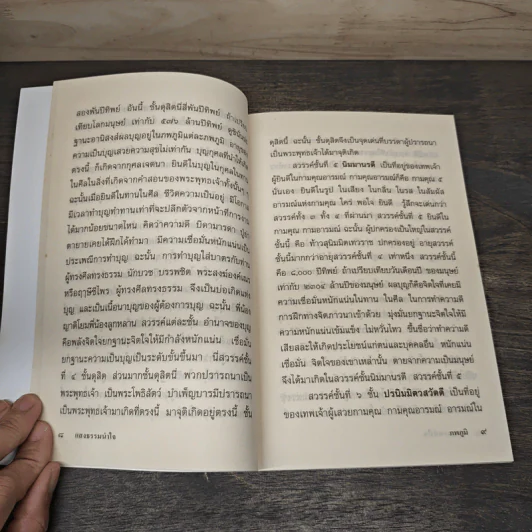 สองพันปีทิพย์ อันนี้ ชั้นดุสิตนี่สี่พันปีทิพย์ ถ้าเปรียบ
เทียบโลกมนุษย์ เท่ากับ ๕๗๖ ล้านปีมนุษย์
ฐานะอานิสงส์ผลบุญอยู่ในภพภูมิแต่ละภพภูมิ
ความเป็นบุญเสวยความสุขไม่เท่ากัน บุญกุศลที่นำให้
ตรงนี้ ก็เกิดจากกุศลเจตนา ยินดีในบุญในกุศลในทาน
ในศีลในสิ่งที่เกิดจากคำสอนของพระพุทธเจ้าทั้งนั้น
ฉะนั้นเมื่อยินดีในทานในศีล ชีวิตความเป็นอยู่ มีโอกาส
มีเวลาทำบุญทำทานเท่าที่จะปลีกตัวจากหน้าที่การงาน
ได้มากน้อยขนาดไหน คิดว่าความดี บิดามารดา ปู่ย่า
ตายายเคยได้ฝึกได้ทำมา มีความเชื่อมั่นหนักแน่นเป็น
ประเพณีการทำบุญ ฉะนั้น การทำบุญได้โสมกับท่าน
ผู้ทรงศีลทรงธรรม นักบวช บรรพชิต พระสงฆ์องค์เณร
หรือฤาษีชีไพร ผู้ทรงศีลทรงธรรม จึงเป็นบ่อเกิดแห่ง
บุญ และเป็นเนื้อนาบุญของผู้ต้องการบุญ ฉะนั้น พี่น้อง
ญาติโยมพี่น้องลูกหลาน สวรรค์แต่ละชั้น อำนาจของบุญ
คือพลังจิตใจยกฐานะจิตใจให้มีกำลังหนักแน่น เชื่อมั่น
ยกฐานะความเป็นบุญเป็นระดับขั้นขึ้นมา นี่สวรรค์ชั้น
ที่ ๔ ชั้นดุสิต ส่วนมากชั้นดุสิตนี่ พวกปรารถนาเป็น
พระพุทธเจ้า เป็นพระโพธิสัตว์ บำเพ็ญบารมีปรารถนา
เป็นพระพุทธเจ้ามาเกิดที่ตรงนี้ มาจุติเกิดอยู่ตรงนี้ ชั้น
๘ กองธรรมนำใจ
ดุสิตนี้ ฉะนั้น ชั้นดุสิตจึงเป็นจุดเด่นที่บรรดาผู้ปรารถนา
เป็นพระพุทธเจ้าได้มาจุติเกิด
สวรรค์ชั้นที่ ๕ นิมมานรดี เป็นที่อยู่ของเทพเจ้า
ผู้ยินดีในกามคุณอารมณ์ กามคุณอารมณ์ก็คือ กามคุณ ๕
นั่นเอง ยินดีในรูป ในเสียง ในกลิ่น ในรส ในสัมผัส
อารมณ์แห่งกามคุณ ใคร่ พอใจ ยินดี รู้สึกจะเด่นกว่า
สวรรค์ทั้ง ๓ ทั้ง ๔ ที่ผ่านมา สวรรค์ชั้นที่ ๕ ยินดีใน
กามคุณ กามคุณอารมณ์ ฉะนั้น ผู้ปกครองเป็นใหญ่ในสวรรค์
ชั้นนี้ คือ ท้าวสุนิมมิตเทวราช ปกครองอยู่ อายุสวรรค์
ชั้นนี้มากกว่าอายุสวรรค์ชั้นที่ ๔ เท่าหนึ่ง สวรรค์ชั้นนี้
คือ ๘,๐๐๐ ปีทิพย์ ถ้าเปรียบเทียบวันเดือนปี ของมนุษย์
เท่ากับ ๒๓๐๔ ล้านปีของมนุษย์ ผลบุญก็คือจิตใจที่เคยมี
ความเชื่อมั่นหนักแน่นในทาน ในศีล ในการทำความดี
การฝึกทางจิตภาวนาเข้าด้วย มุ่งมั่นยกฐานะจิตใจให้มี
ความหนักแน่นเข้มแข็ง ไม่หวั่นไหว ขึ้นชื่อว่าทำความดี
เสียสละให้เกิดประโยชน์แก่ตนและบุคคลอื่น หนักแน่น
เชื่อมั่น จิตใจของเขาเหล่านั้น ตายจากความเป็นมนุษย์
จึงได้มาเกิดในสวรรค์ชั้นนิมมานรดี สวรรค์ชั้นที่ ๕
สวรรค์ ชั้นที่ ๖ ชั้น ปรนิมมิตวสวัตตี เป็นที่อยู่
ของเทพเจ้าผู้เสวยกามคุณ กามคุณอารมณ์ อารมณ์ใน
ภพภูมิ ๙